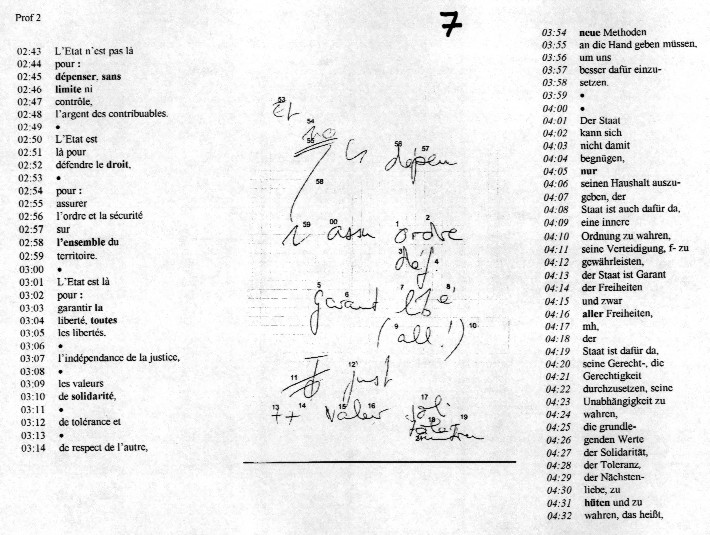 Prof 2
7
02:43 L'Etat n'est pas là
02:44 pour :
02:45 dépenser, sans
02:46 limite ni
02:47 contrôle,
02:48 l'argent des contribuables.
02:49 •
02:50 L'Etat est
02:51 là pour
02:52 défendre le droit,
02:53 •
02:54 pour :
02:55 assurer
02:56 l'ordre et la sécurité
02:57 sur
02:58 l'ensemble du
02:59 territoire.
03:00 •
03:01 L'Etat est là
03:02 pour :
03:03 garantir la
03:04 liberté, toutes
03:05 les libertés.
03:06 •
03:07 l'indépendance de la justice,
03:08 •
03:09 les valeurs
03:10 de solidarité,
03:11 •
03:12 de tolérance et
03:13 •
03:14 de respect de l'autre,
53
54
55
56 57
dépen
58
59 00 1 2
assu ordre
3 4
déf.
5 6 7 8
garant lbé
9 10
(all!)
11 12
just
13 14 15 16 17
++ valeur sol.
18 19
toler
03:54 neue Methoden
03:55 an die Hand geben müssen,
03:56 um uns
03:57 besser dafür einzu-
03:58 setzen.
03:59 •
04:00 •
04:01 Der Staat
04:02 kann sich
04:03 nicht damit
04:04 begnügen,
04:05 nur
04:06 seinen Haushalt auszu-
04:07 geben, der
04:08 Staat ist auch dafür da,
04:09 eine innere
04:10 Ordnung zu wahren,
04:11 seine Verteidigung, f- zu
04:12 gewährleisten,
04:13 der Staat ist Garant
04:14 der Freiheiten
04:15 und zwar
04:16 aller Freiheiten,
04:17 mh,
04:18 der
04:19 Staat ist dafür da,
04:20 seine Gerecht-, die
04:21 Gerechtigkeit
04:22 durchzusetzen, seine
04:23 Unabhängigkeit zu
04:24 wahren,
04:25 die grundle-
04:26 genden Werte
04:27 der Solidarität,
04:28 der Toleranz,
04:29 der Nächsten-
04:30 liebe, zu
04:31 hüten und zu
04:32 wahren, das heißt,